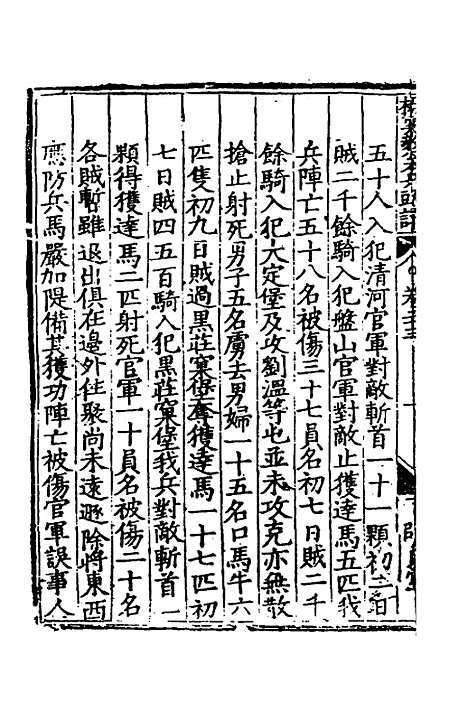 五十人入犯清河官軍對敵斬首一十一顆初
賊二千餘騎入犯盤山官軍對敵止獲達馬五匹我
兵陣亡五十八名被傷三十七員名初七日賊二千
餘騎入犯大定堡及攻劉溫等屯並未攻克亦無散
搶止射死男子五名虜去男婦一十五名口馬牛六
匹隻初九日賊過黑莊窠堡奪獲達馬一十七匹初
七日賊四五百騎入犯黑莊窠堡我兵對敵斬首一
顆得獲達馬二匹射死官軍一十員名被傷二十名
各賊暫雖退出俱在邊外住聚尚未遠遯除將東西
應防兵馬嚴加隄備其獲功陣亡被傷官軍誤事人